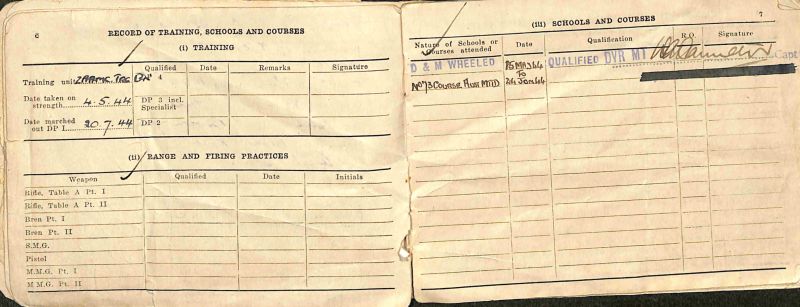 6
RECORD OF TRAINING, SCHOOLS AND COURSES
(i) TRAINING
Qualified Date Remarks Signature
Training unit 2 PARMC TRG BN 4
Date taken on
strength 4.5.44 DP 3 incl.
Specialist
Date marched
out DP I 20.7.44 DP 2
(ii) RANGE AND FIRING PRACTICES
Weapon Qualified Date Initials
Rifle, Table A Pt. I
Rifle, Table A Pt. II
Bren Pt. I
Bren Pt. II
S.M.G.
Pistol
M.M.G. Pt. I
M.M.G. Pt. II
7
(iii) SCHOOLS AND COURSES
Nature of Schools or
Courses attended Date Qualification R.O. Signature
D & M WHEELED 15 MAY 44 QUALIFIED DVR MT Capt
TO
No 73 COURSE 24 JUN 44